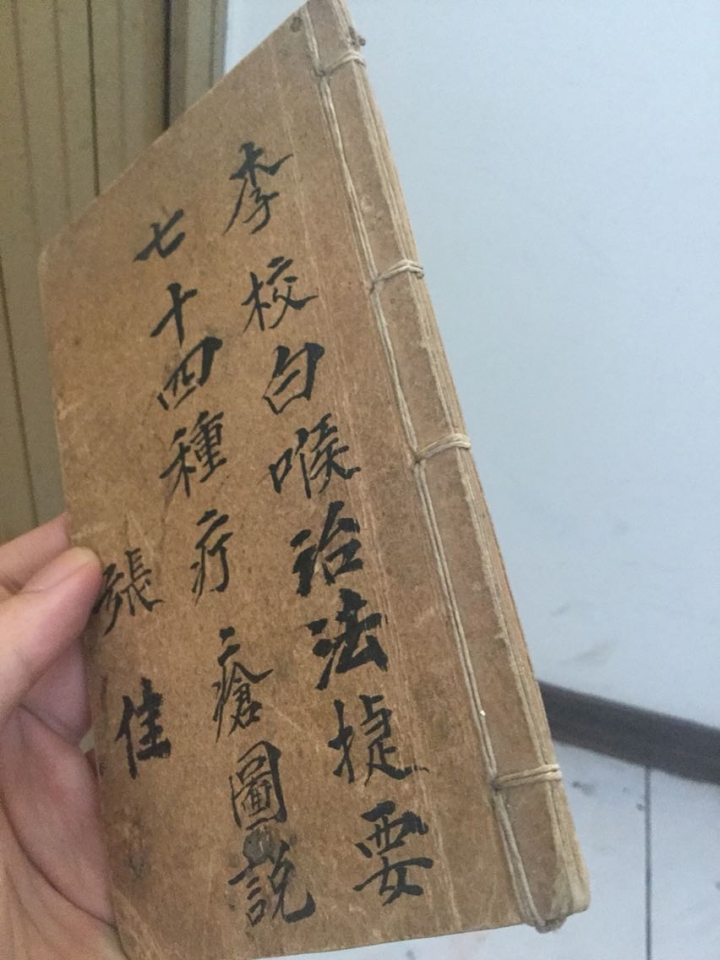 李校白喉治法捷要
七十四種疔瘡圖說
張佳